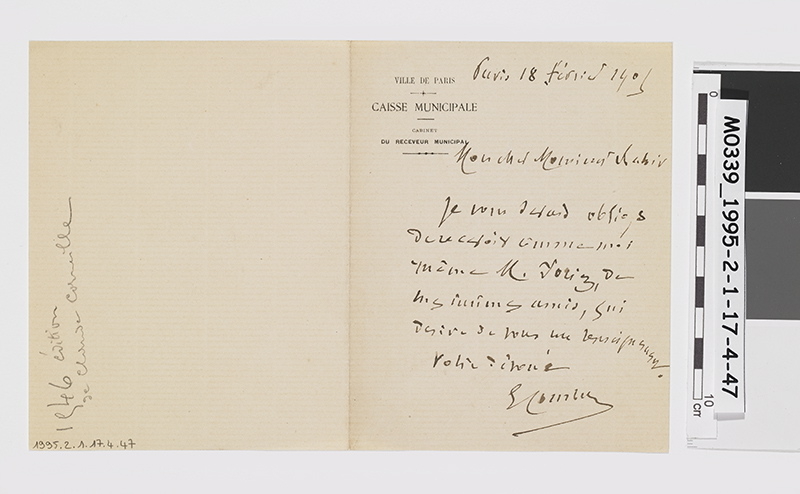 VILLE DE PARIS
CAISSE MUNICIPALE
CABINET
DU RECEVEUR MUNICIPAL
Paris 18 février
Mon cher Monsieur
Je vous serais obligé
de recevoir comme moi
même M. de
mes intimes amis, qui
désire de vous un renseignement.
Votre dévoué
1546 édition
de Claude Corneille
1995.2.1.17.4.47
M0339_1995-2-1-17-4-47
0
10
cm